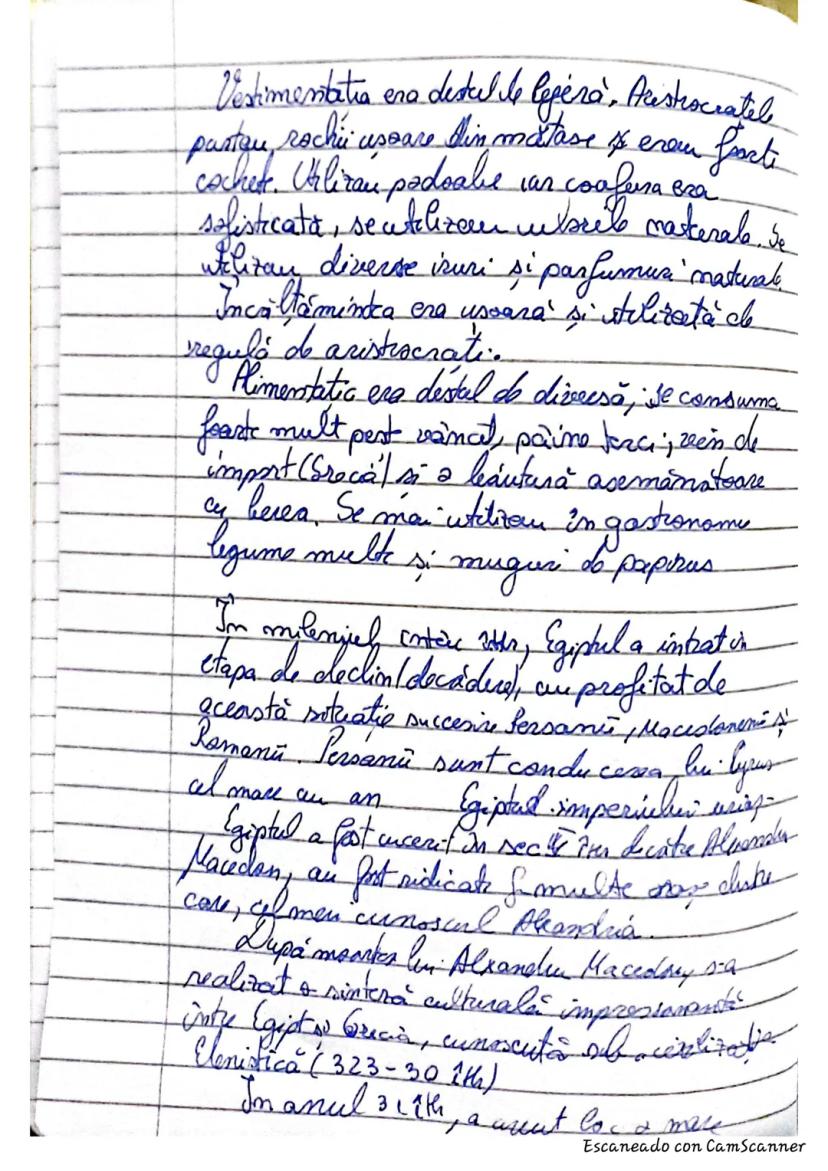 Vestimentația era destul de lejeră. Aristocratele
purtau rochii ușoare din mătase și erau foarte
cochet. Utilizau podoabe iar coafura era
sofisticată, se utilizau uleiurile naturale. Se
utilizau diverse iruri și parfumuri naturale
Încălțămintea era ușoară și utilizată de
regulă de aristocrați.
Alimentația era destul de diversă, se consuma
foarte mult pește vânat, pâine, vin de
import (Grecia) și o băutură asemănătoare
cu berea. Se mai utilizau în gastronomie
legume multe și muguri de papirus
În mileniul întâi îHr, Egiptul a intrat în
etapa de declin (decădere), au profitat de
această situație succesiv Persanii, Macedonenii și
Romanii. Persanii sunt conducerea lui Cyrus
cel mare au an Egiptul imperiului
Egiptul a fost cucerit în sec IV îHr de către Alexandru
Macedon, au fost ridicate f. multe orașe dintre
care, cel mai cunoscut Alexandria.
După moartea lui Alexandru Macedon s-a
realizat o sinteză culturală impresionantă
între Egipt și Grecia, cunoscută sub civilizația
Elenistică (323-30 îHr)
În anul 31 îHr, a avut loc o mare
Escaneado con CamScanner